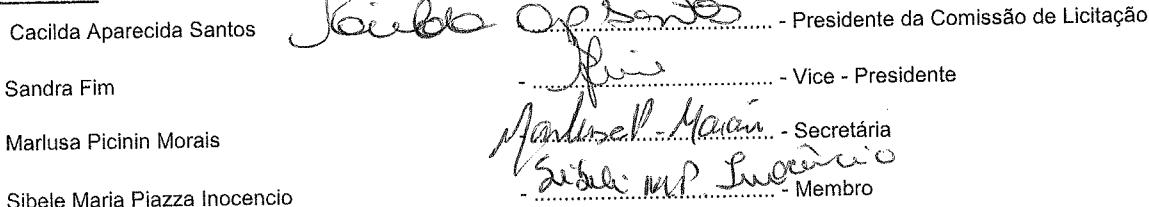 Cacilda Aparecida Santos Cacilda Ap Santos - Presidente da Comissão de Licitação
Sandra Fim - Fim - Vice - Presidente
Marlusa Picinin Morais Marlusa P. Morais - Secretária
Sibele Maria Piazza Inocencio - Sibele MP Inocêncio - Membro